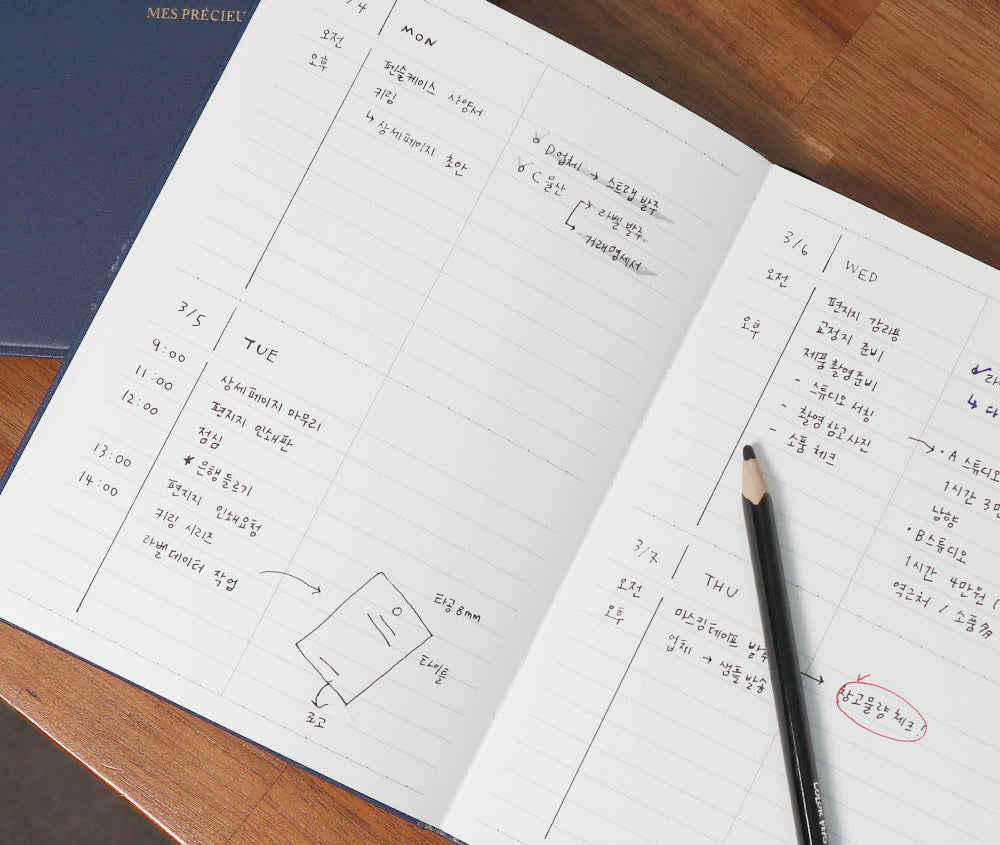 MES PRÉCIEU
/4 MON
오전
오후
펜슬케이스 사양서
키링
↳ 상세페이지 초안
D업체 → 스트랩 발주
C 물산
→ 라벨 발주
→ 거래명세서
3/5 TUE
9:00
11:00
12:00
13:00
14:00
상세페이지 마무리
편지지 인쇄판
점심
★ 은행 들르기
편지지 인쇄요청
키링 시리즈
라벨데이터 작업
타공 8mm
타이틀
로고
3/6 WED
오전
오후
편지지 감리용
교정지 준비
제품촬영준비
- 스튜디오 서칭
- 촬영 참고사진
- 소품 체크
↳ 다
· A 스튜디오
1시간 3만
남향
· B스튜디오
1시간 4만원
역근처 / 소품多
3/7 THU
오전
오후
마스킹테이프 발주
업체 → 샘플발송
창고물량 체크!